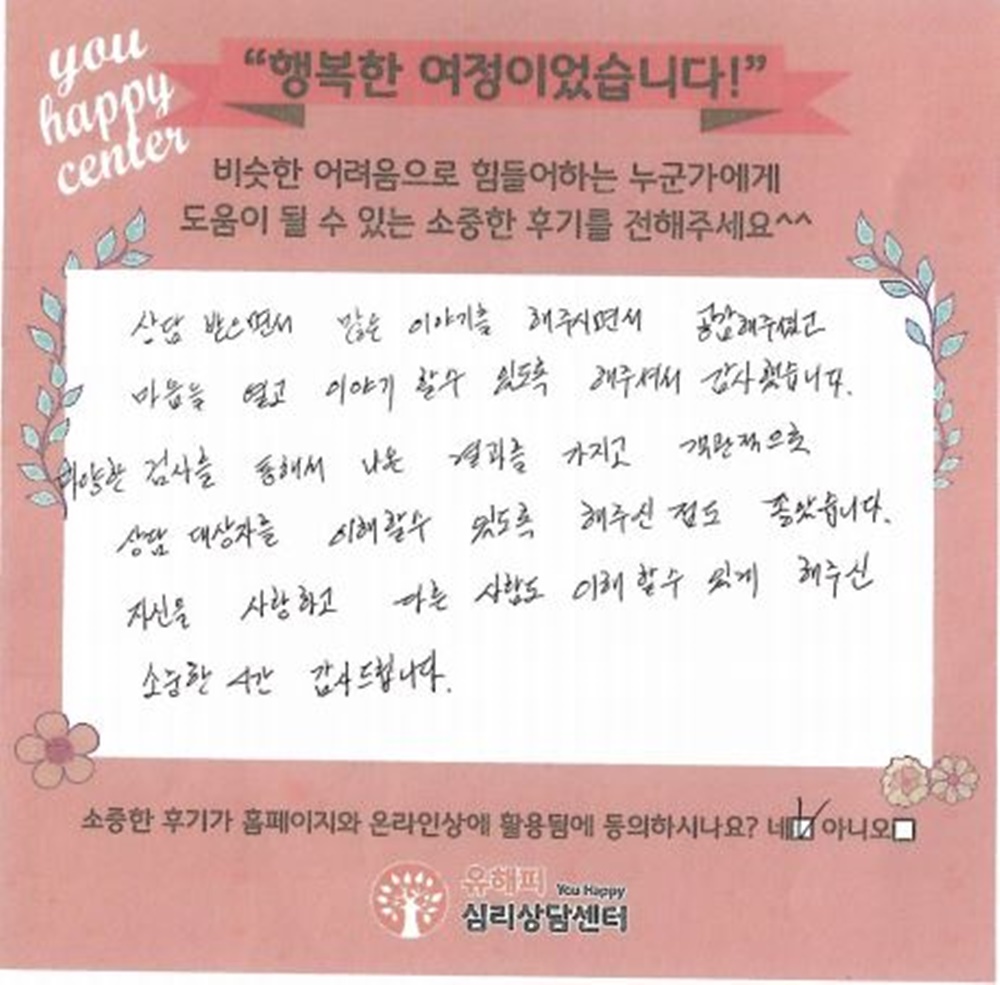 you
happy
center
“행복한 여정이었습니다!”
비슷한 어려움으로 힘들어하는 누군가에게
도움이 될 수 있는 소중한 후기를 전해주세요^^
상담 받으면서 많은 이야기를 해주시면서 공감해주셨고
마음을 열고 이야기 할수 있도록 해주셔서 감사했습니다.
다양한 검사를 통해서 나온 결과를 가지고 객관적으로
상담 대상자를 이해할수 있도록 해주신 점도 좋았습니다.
자신을 사랑하고 다른 사람도 이해 할수 있게 해주신
소중한 시간 감사드립니다.
소중한 후기가 홈페이지와 온라인상에 활용됨에 동의하시나요? 네 아니오
유해피 You Happy
심리상담센터